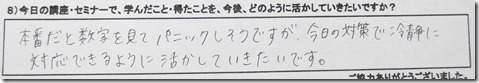 8）今日の講座・セミナーで、学んだこと・得たことを、今後、どのように活かしていきたいですか？
本番だと数字を見てパニックしそうですが、今日の対策で冷静に
対応できるように活かしていきたいです。
ご協力ありがとうございました。